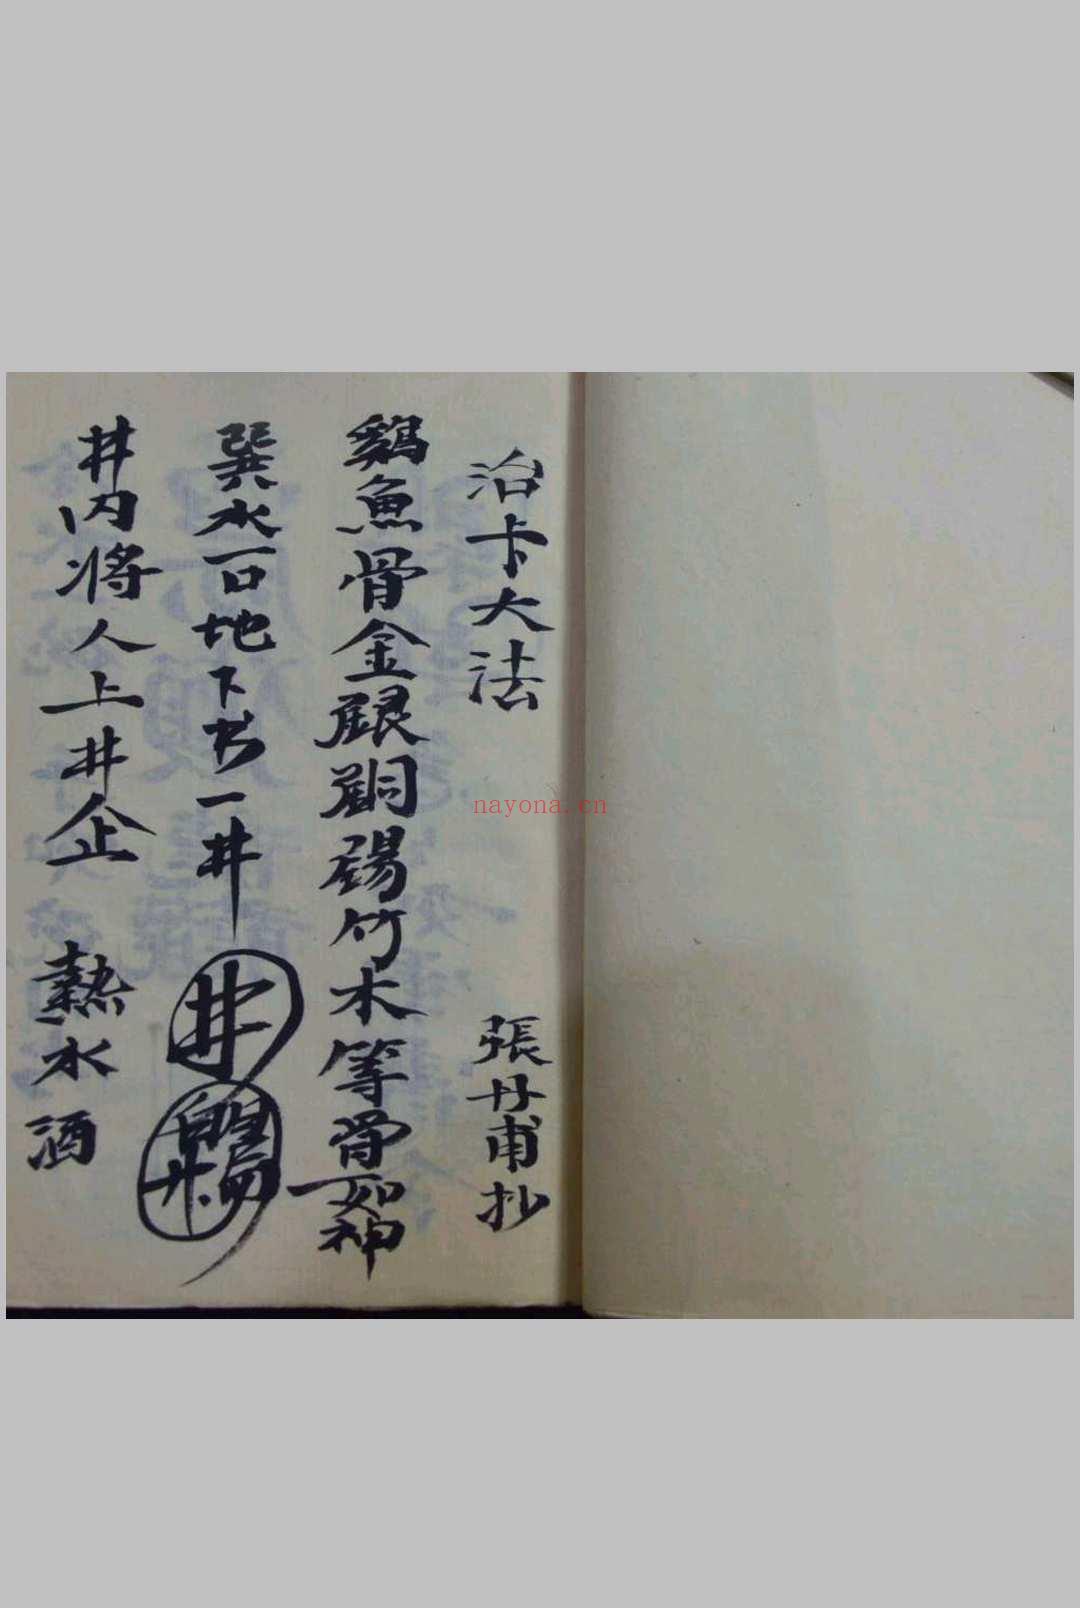 治卡大法　張丹甫抄
鷄魚骨金銀銅錫竹木等骨如神
巽水一口地下书一井 井
井内將人上井企　熱水酒
nayona.cn